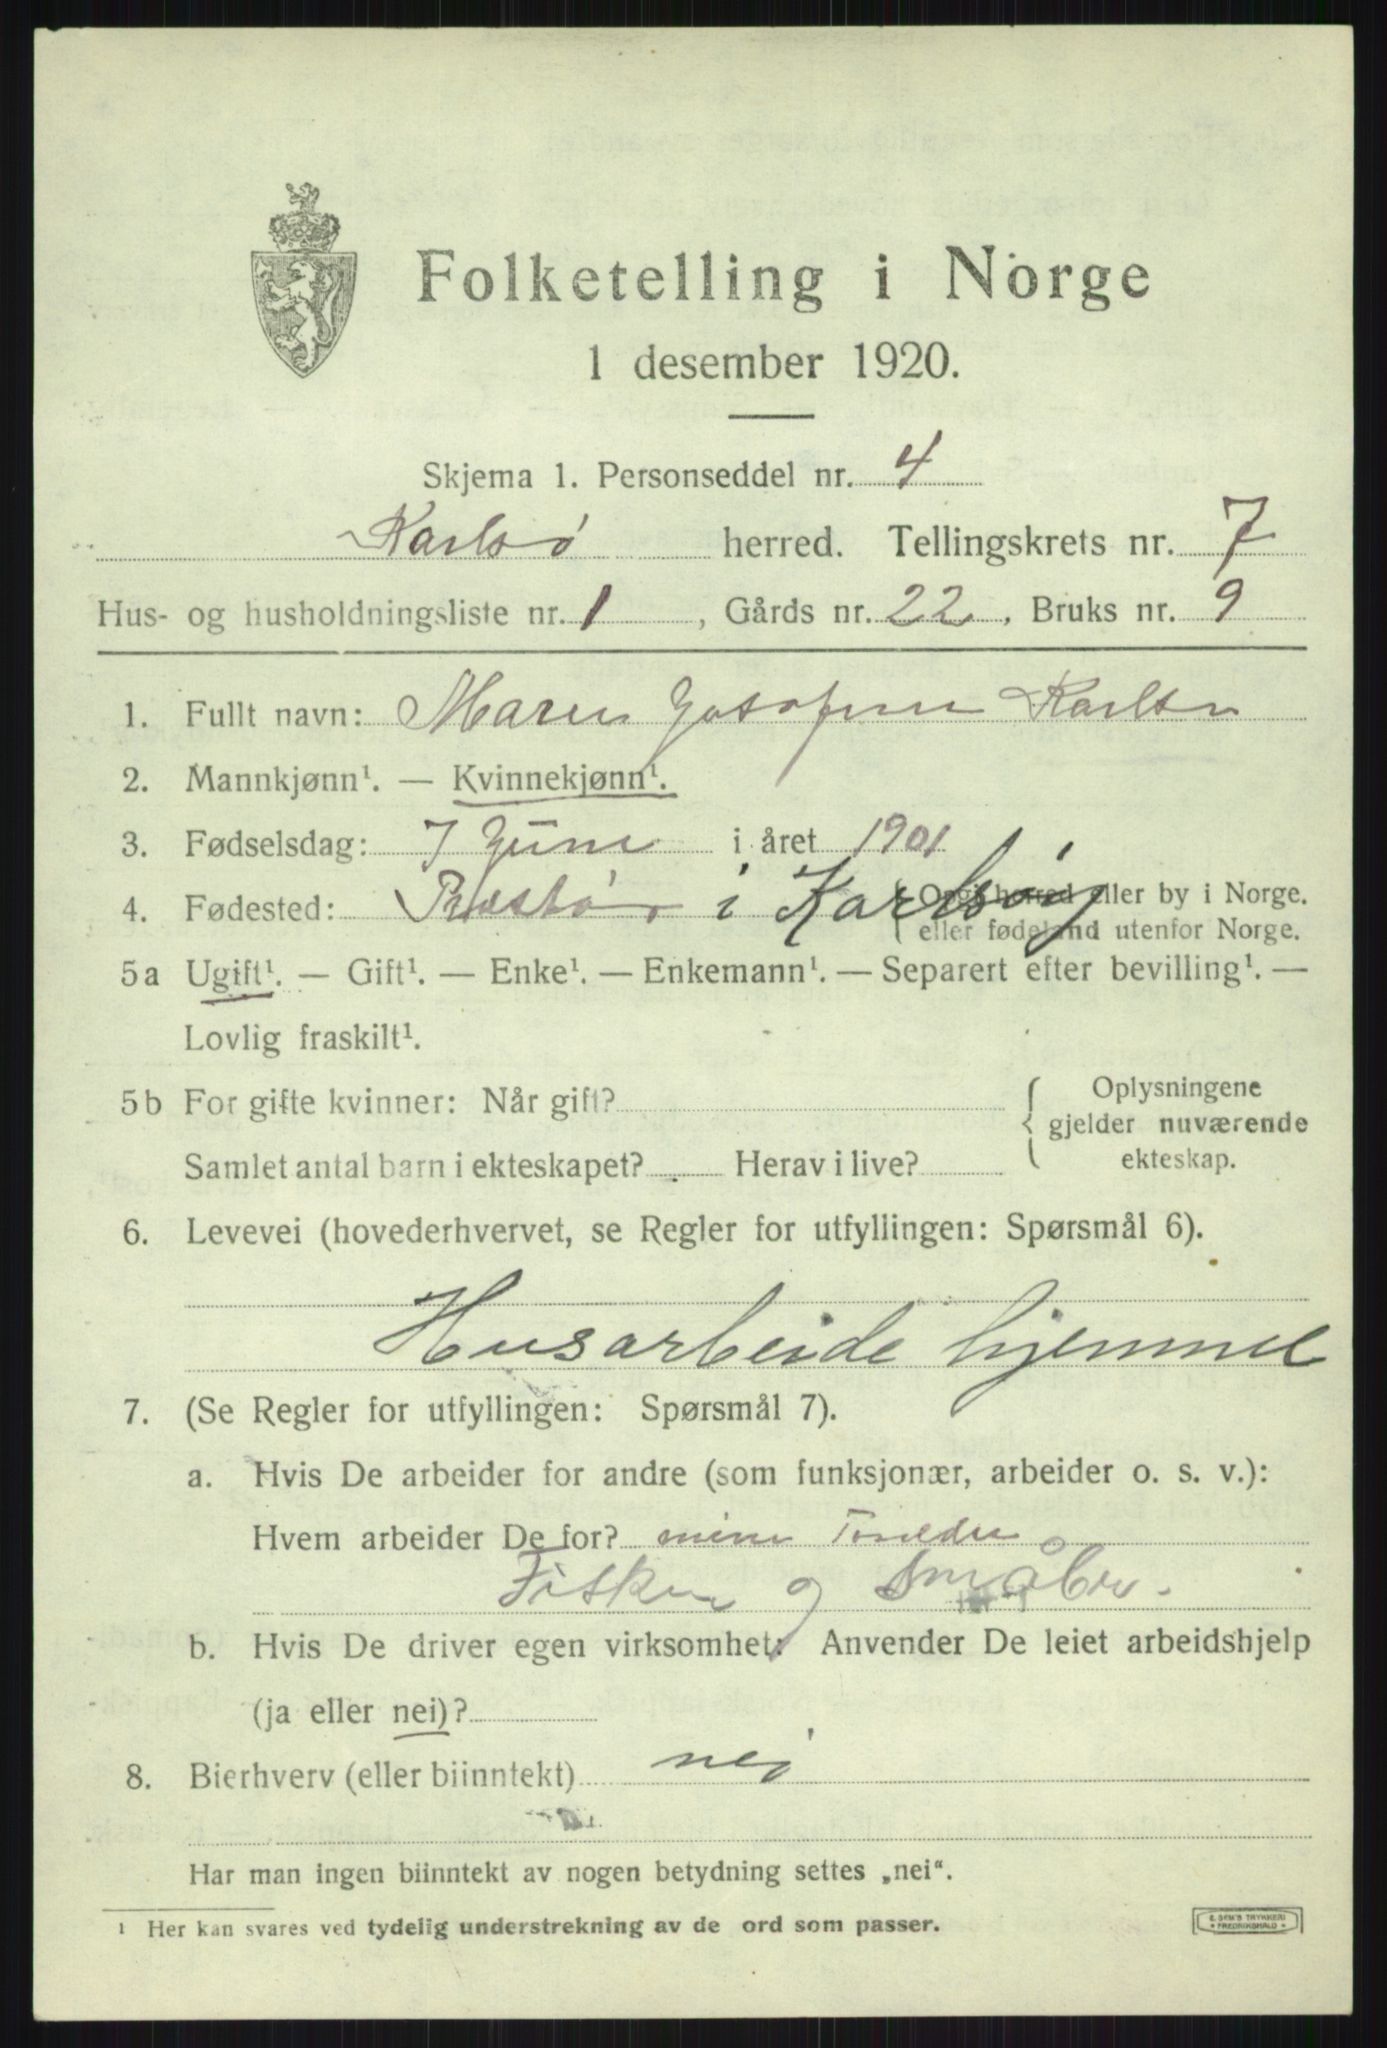 Folketelling i Norge
1 desember 1920.
Skjema 1. Personseddel nr. 4
Karlsø herred. Tellingskrets nr. 7
Hus- og husholdningsliste nr. 1, Gårds nr. 22, Bruks nr. 9
1. Fullt navn: Maren Josofine Karlsen
2. Mannkjønn¹. — Kvinnekjønn¹.
3. Fødselsdag: 7 June i året 1901
4. Fødested: i Karlsøy Opgi herred eller by i Norge.
eller fødeland utenfor Norge.
5a Ugift¹. — Gift¹. — Enke¹. — Enkemann¹. — Separert efter bevilling¹. —
Lovlig fraskilt¹.
5b For gifte kvinner: Når gift?
Oplysningene
gjelder nuværende
ekteskap.
Samlet antal barn i ekteskapet? Herav i live?
6. Levevei (hovederhvervet, se Regler for utfyllingen: Spørsmål 6).
Husarbeide hjemme
7. (Se Regler for utfyllingen: Spørsmål 7).
a. Hvis De arbeider for andre (som funksjonær, arbeider o. s. v.):
Hvem arbeider De for? mine
Fisker og småbr.
b. Hvis De driver egen virksomhet: Anvender De leiet arbeidshjelp
(ja eller nei)?
8. Bierhverv (eller biinntekt) nei
Har man ingen biinntekt av nogen betydning settes „nei“.
¹ Her kan svares ved tydelig understrekning av de ord som passer.
E. SEM'S TRYKKERI
FREDRIKSHALD